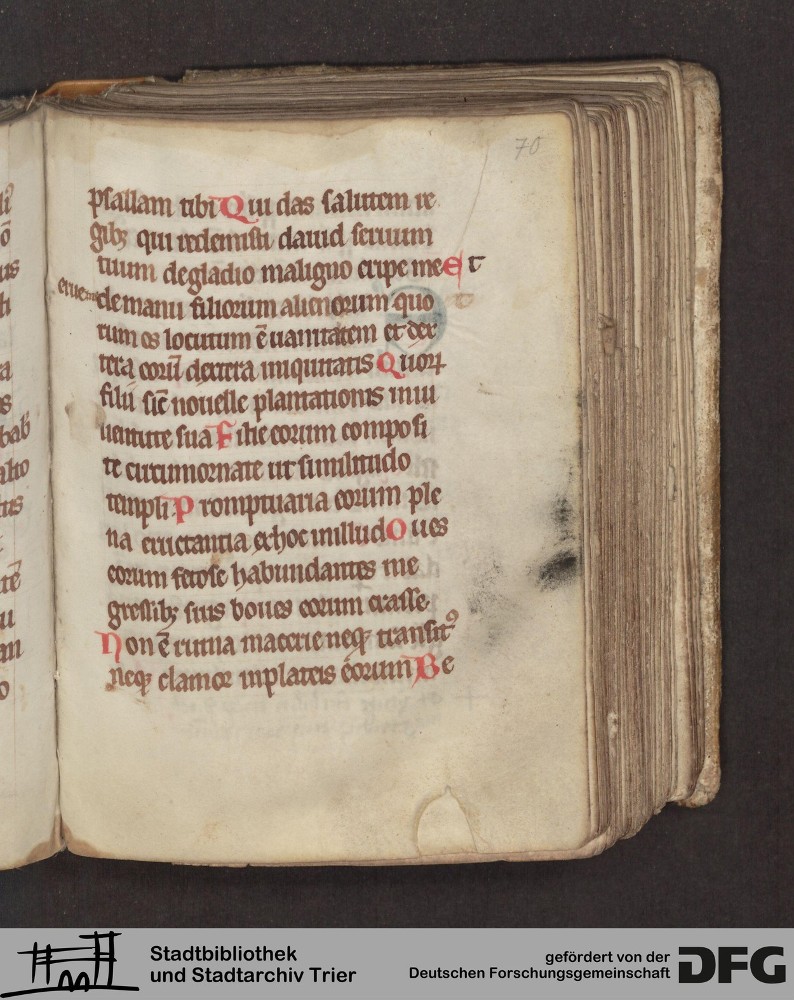 70
psallam tibi Qui das salutem re
gibꝫ qui redemisti dauid seruum
tuum de gladio maligno eripe me Et
erue me
de manu filiorum alienorum quo
rum os locutum ē uanitatem et dex
tera eorū dextera iniquitatis Quoꝝ
filii sic̄ nouelle plantationis in iu
uentute sua Filie eorum composi
te circumornate ut similitudo
templi Promptuaria eorum ple
na eructantia ex hoc in illud Oues
eorum fetose habundantes in e
gressibꝫ suis boues eorum crasse
Non ē ruina macerie neqꝫ transitꝰ
neqꝫ clamor in plateis eorum Be
Stadtbibliothek
und Stadtarchiv Trier
gefördert von der
Deutschen Forschungsgemeinschaft
DFG